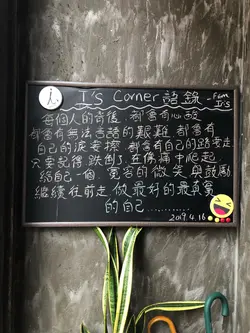 i
I's Corner語錄 -From Iris
每個人的背後 都會有心酸
都會有無法言語的艱難 都會有
自己的淚要擦 都會有自己的路要走
只要記得 跌倒了 在傷痛中爬起
給自己一個 寬容的微笑與鼓勵
繼續往前走 做最好的最真實
的自己............
2019.4.16